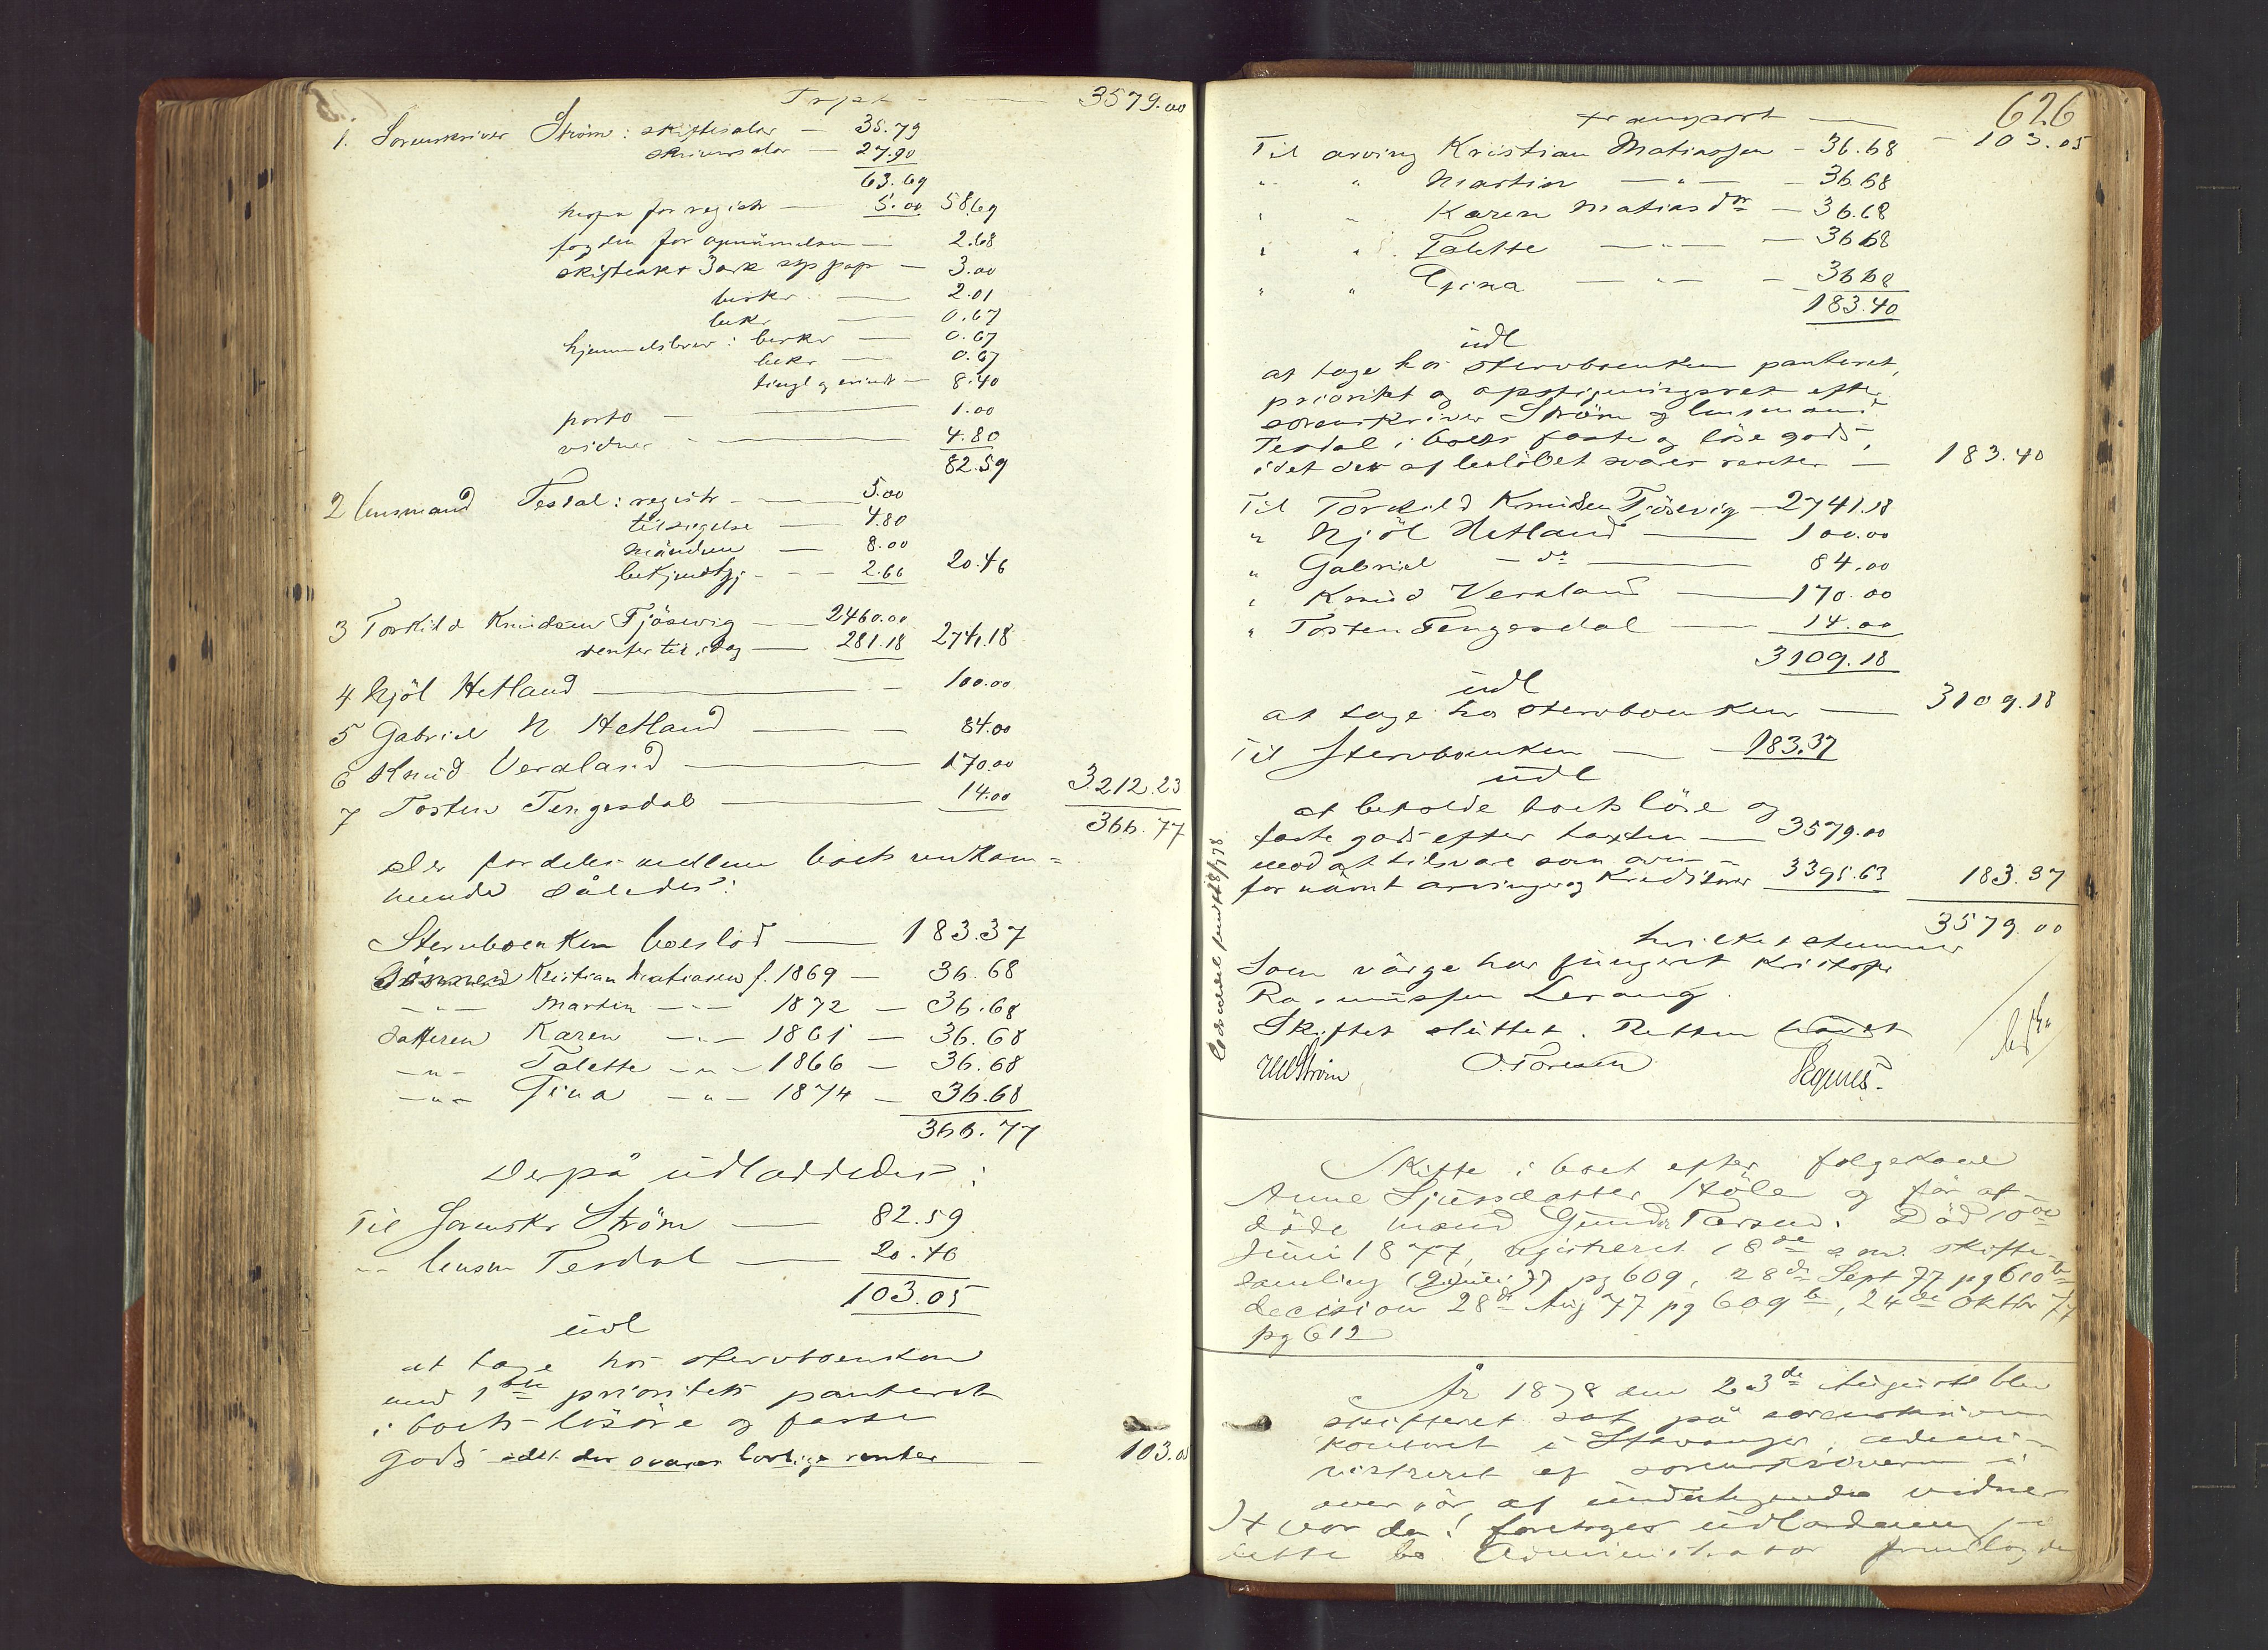 Trpt — 3579.00
1. Sorenskriver Strøm: skiftesalær — 35.79
skriversalær — 27.90
63.69
herfra for registr — 5.00 58.69
fogden for opnævnelsen — 2.68
skifteakt 3 ark stp pap — 3.00
beskr — 2.01
bekr — 0.67
hjemmelsbrev: beskr — 0.67
bekr — 0.67
tingl og erindr — 8.40
porto — 1.00
vidner — 4.80
82.59
2 lensmand Tesdal: registr — 5.00
tilsigelse — 4.80
mændene — 8.00
bekjendtgj — 2.66 20.46
3 Torkild Knudsen Tjøsvig — 2460.00
renter til idag — 281.18 2741.18
4 Njöl Hetland — 100.00
5 Gabriel N Hetland — 84.00
6 Knud Veraland — 170.00
7 Tosten Tengesdal — 14.00 3212.23
366.77
der fordeles mellem boets vedkom=
mende således:
Stervboenken boeslod — 183.37
Sønnen Kristian Matiassen f. 1869 — 36.68
—"— Martin —"— 1872 — 36.68
datteren Karen —"— 1861 — 36.68
—"— Talette —"— 1866 — 36.68
—"— Gina —"— 1874 — 36.68
366.77
Derpå udlagdes:
Til Sorenskr Strøm — 82.59
—"— lensm Tesdal — 20.46
103.05
udl
at tage hos stervboenken
med 1ste prioritets panteret
i boets løsøre og faste
gods idet der svares lovlige renter — 103.05
626
transport — 103.05
Til arving Kristian Matiassen — 36.68
" " Martin —"— — 36.68
" " Karen Matiasdtr — 36.68
" " Talette —"— — 36.68
" " Gina —"— — 36.68
183.40
udl
at tage hos stervboenken panteret,
prioritet og opstigningsret efter
sorenskriver Strøm og lensmand
Tesdal i boets faste og løse gods,
idet der af beløbet svares renter — 183.40
Til Torkild Knudsen Tjøsvig — 2741.18
" Njöl Hetland — 100.00
" Gabriel — do — 84.00
" Knud Veraland — 170.00
" Tosten Tengesdal — 14.00
3109.18
udl
at tage hos stervboenken — 3109.18
Til Stervboenken — 183.37
udl
at beholde boets løse og
faste gods efter taxten — 3579.00
mod at tilsvare som oven=
for nævnt arvinger og kreditorer 3395.63 183.37
3579.00
hvilket stemmer
Som værge har fungeret Kristofer
Rasmussen Lerang.
Skiftet sluttet. Retten hævet
Strøm O. Toresen
Skifte i boet efter følgekone
Anne Sjursdatter Høle og før af=
døde mand Gunder Torsen. Død 10de
Juni 1877, registreret 18de s. m. skifte=
samling 12 Juli 77 pg 609, 28de Sept 77 pg 610b
decision 28de Aug 77 pg 609b, 24de Oktbr 77
pg 612
År 1878 den 23de August blev
skifteret sat på sorenskriver
kontoret i Stavanger, admi=
nistreret af sorenskriveren i
overvær af undertegnede vidner
Hvor da! foretoges udlodning i
dette bo Administrator fremlagde